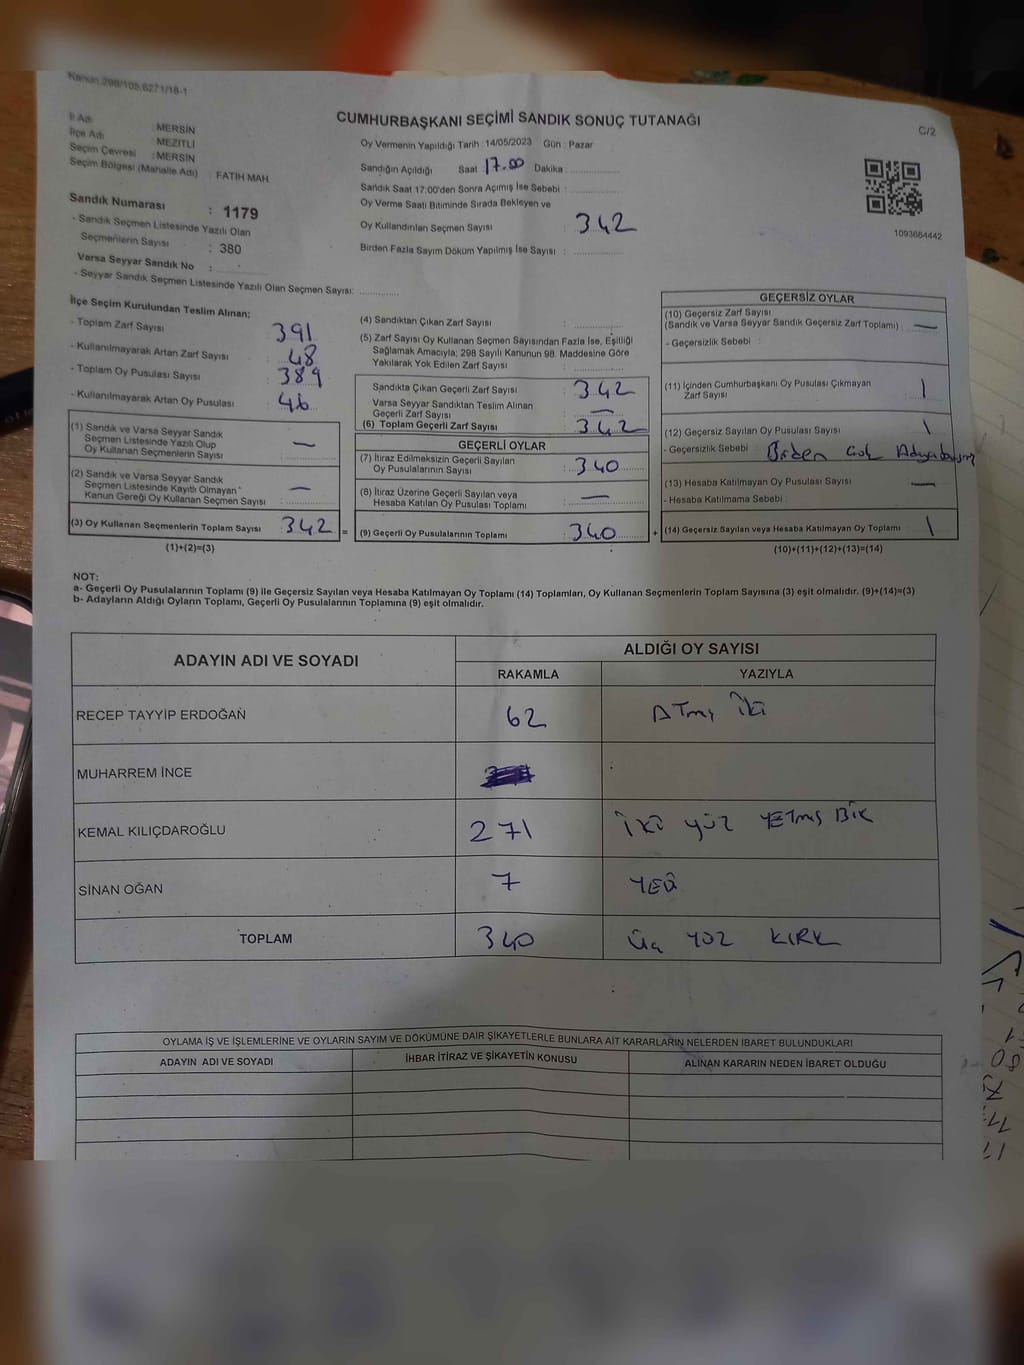 Kanun:298/105,6271/18-1
CUMHURBAŞKANI SEÇİMİ SANDIK SONUÇ TUTANAĞI
C/2
İl Adı : MERSİN
İlçe Adı : MEZİTLİ
Seçim Çevresi : MERSİN
Seçim Bölgesi (Mahalle Adı) : FATİH MAH.
Sandık Numarası : 1179
- Sandık Seçmen Listesinde Yazılı Olan
Seçmenlerin Sayısı : 380
Varsa Seyyar Sandık No :
- Seyyar Sandık Seçmen Listesinde Yazılı Olan Seçmen Sayısı:
Oy Vermenin Yapıldığı Tarih : 14/05/2023 Gün : Pazar
Sandığın Açıldığı Saat 17.00 Dakika :
Sandık Saat 17:00'den Sonra Açılmış İse Sebebi :
Oy Verme Saati Bitiminde Sırada Bekleyen ve
Oy Kullandırılan Seçmen Sayısı : 342
Birden Fazla Sayım Döküm Yapılmış İse Sayısı :
1093664442
İlçe Seçim Kurulundan Teslim Alınan;
- Toplam Zarf Sayısı : 391
- Kullanılmayarak Artan Zarf Sayısı : 48
- Toplam Oy Pusulası Sayısı : 389
- Kullanılmayarak Artan Oy Pusulası : 46
(1) Sandık ve Varsa Seyyar Sandık
Seçmen Listesinde Yazılı Olup
Oy Kullanan Seçmenlerin Sayısı : —
(2) Sandık ve Varsa Seyyar Sandık
Seçmen Listesinde Kayıtlı Olmayan
Kanun Gereği Oy Kullanan Seçmen Sayısı : —
(3) Oy Kullanan Seçmenlerin Toplam Sayısı : 342 =
(1)+(2)=(3)
(4) Sandıktan Çıkan Zarf Sayısı :
(5) Zarf Sayısı Oy Kullanan Seçmen Sayısından Fazla İse, Eşitliği
Sağlamak Amacıyla; 298 Sayılı Kanunun 98. Maddesine Göre
Yakılarak Yok Edilen Zarf Sayısı :
Sandıkta Çıkan Geçerli Zarf Sayısı : 342
Varsa Seyyar Sandıktan Teslim Alınan
Geçerli Zarf Sayısı : —
(6) Toplam Geçerli Zarf Sayısı : 342
GEÇERLİ OYLAR
(7) İtiraz Edilmeksizin Geçerli Sayılan
Oy Pusulalarının Sayısı : 340
(8) İtiraz Üzerine Geçerli Sayılan veya
Hesaba Katılan Oy Pusulası Toplamı : —
(9) Geçerli Oy Pusulalarının Toplamı : 340 +
GEÇERSİZ OYLAR
(10) Geçersiz Zarf Sayısı
(Sandık ve Varsa Seyyar Sandık Geçersiz Zarf Toplamı) : —
- Geçersizlik Sebebi :
(11) İçinden Cumhurbaşkanı Oy Pusulası Çıkmayan
Zarf Sayısı : 1
(12) Geçersiz Sayılan Oy Pusulası Sayısı : 1
- Geçersizlik Sebebi : Birden çok
(13) Hesaba Katılmayan Oy Pusulası Sayısı : —
- Hesaba Katılmama Sebebi :
(14) Geçersiz Sayılan veya Hesaba Katılmayan Oy Toplamı : 1
(10)+(11)+(12)+(13)=(14)
NOT:
a- Geçerli Oy Pusulalarının Toplamı (9) ile Geçersiz Sayılan veya Hesaba Katılmayan Oy Toplamı (14) Toplamları, Oy Kullanan Seçmenlerin Toplam Sayısına (3) eşit olmalıdır. (9)+(14)=(3)
b- Adayların Aldığı Oyların Toplamı, Geçerli Oy Pusulalarının Toplamına (9) eşit olmalıdır.
ADAYIN ADI VE SOYADI
ALDIĞI OY SAYISI
RAKAMLA YAZIYLA
RECEP TAYYİP ERDOĞAN 62 ATmış iki
MUHARREM İNCE
KEMAL KILIÇDAROĞLU 271 iki yüz YETmiş BİR
SİNAN OĞAN 7 YEDİ
TOPLAM 340 Üç YÜZ KIRK
OYLAMA İŞ VE İŞLEMLERİNE VE OYLARIN SAYIM VE DÖKÜMÜNE DAİR ŞİKAYETLERLE BUNLARA AİT KARARLARIN NELERDEN İBARET BULUNDUKLARI
ADAYIN ADI VE SOYADI İHBAR İTİRAZ VE ŞİKAYETİN KONUSU ALINAN KARARIN NEDEN İBARET OLDUĞU